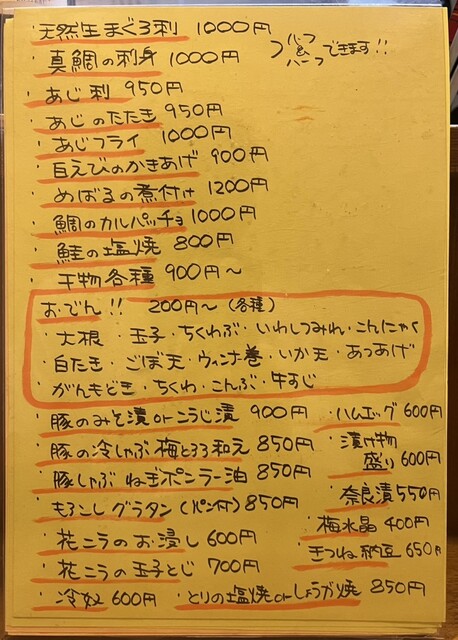 天然生まぐろ刺 1000円
・真鯛の刺身 1000円
ハーフ&ハーフできます!!
・あじ刺 950円
・あじのたたき 950円
・あじフライ 1000円
・白えびのかきあげ 900円
・めばるの煮付け 1200円
・鯛のカルパッチョ 1000円
・鮭の塩焼 800円
・干物各種 900円〜
おでん!! 200円〜(各種)
・大根・玉子・ちくわぶ・いわしつみれ・こんにゃく
・白たき・ごぼ天・ウィンナ巻・いか天・あつあげ
・がんもどき・ちくわ・こんぶ・牛すじ
・豚のみそ漬orこうじ漬 900円
・ハムエッグ 600円
・豚の冷しゃぶ梅とろろ和え 850円
・漬け物盛り 600円
・豚しゃぶ ねぎポンラー油 850円
・奈良漬 550円
・もろこしグラタン(パン付) 850円
・梅水晶 400円
・花ニラのお浸し 600円
・きつね納豆 650円
・花ニラの玉子とじ 700円
・冷奴 600円
・とりの塩焼orしょうが焼 850円